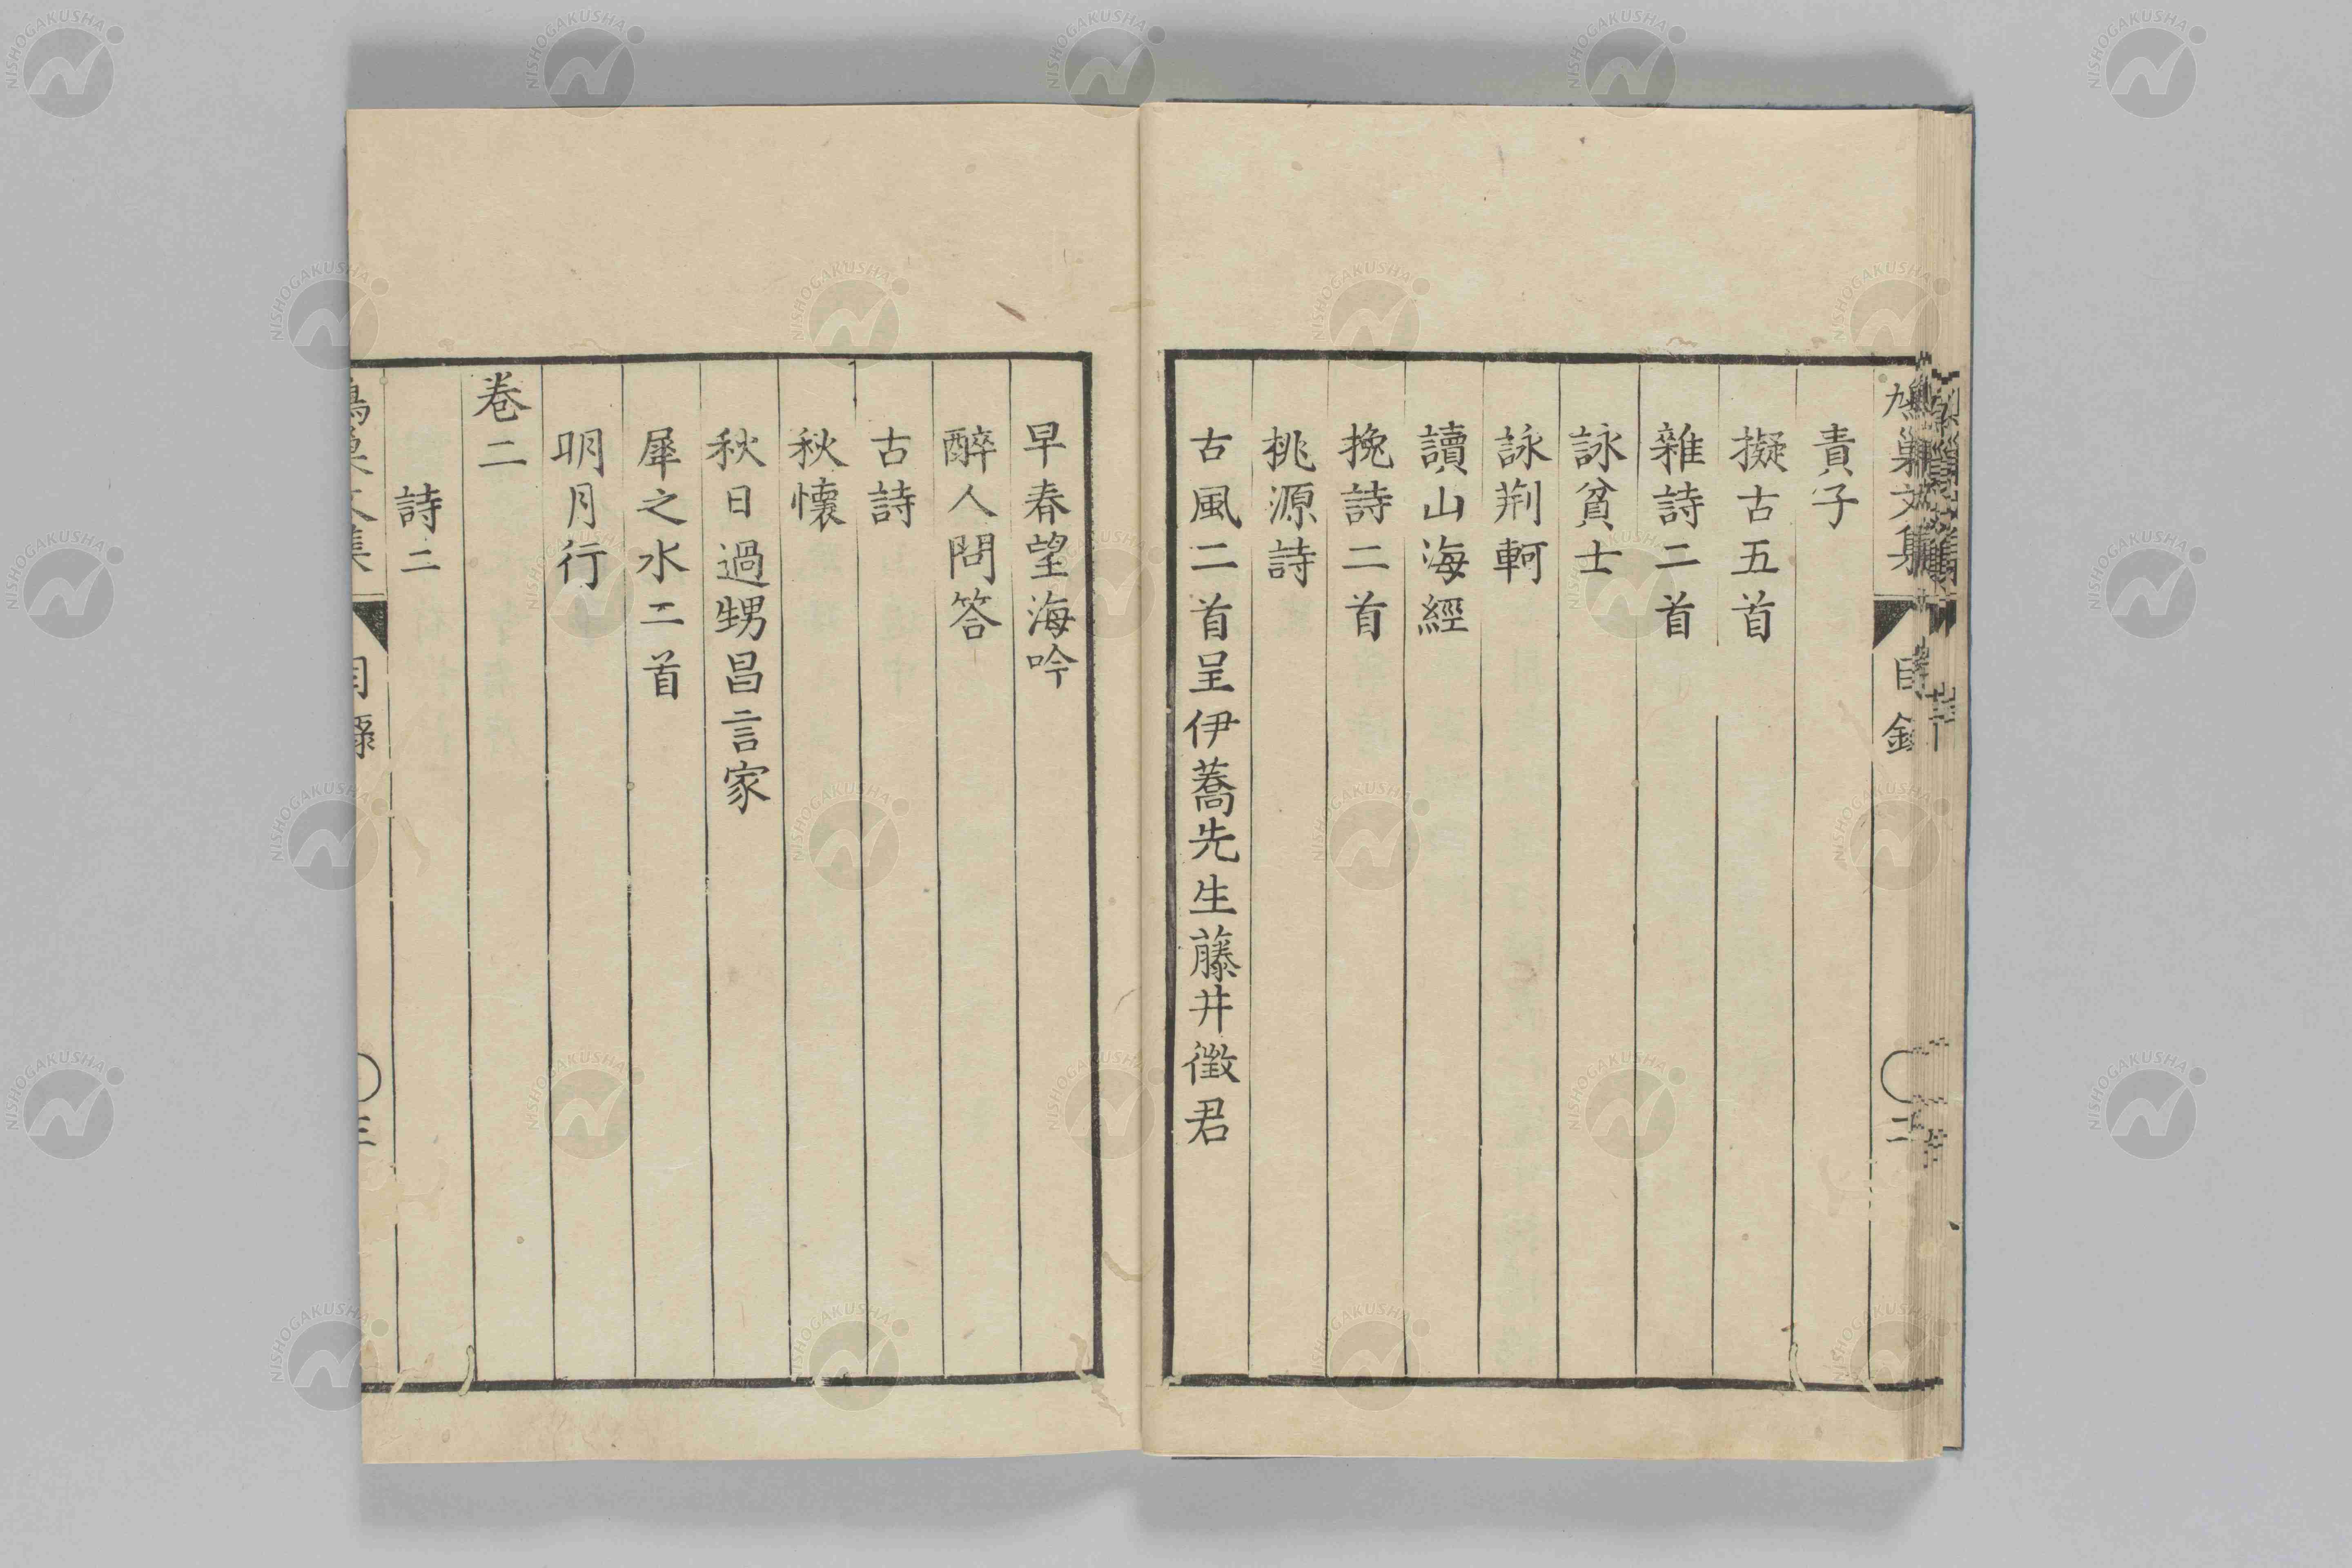 責子
擬古五首
雜詩二首
詠貧士
詠荆軻
讀山海經
挽詩二首
桃源詩
古風二首呈伊蒿先生藤井徵君
早春望海吟
醉人問答
古詩
秋懷
秋日過甥昌言家
犀之水二首
明月行
卷二
詩二
目錄
三
NISHOGAKUSHA